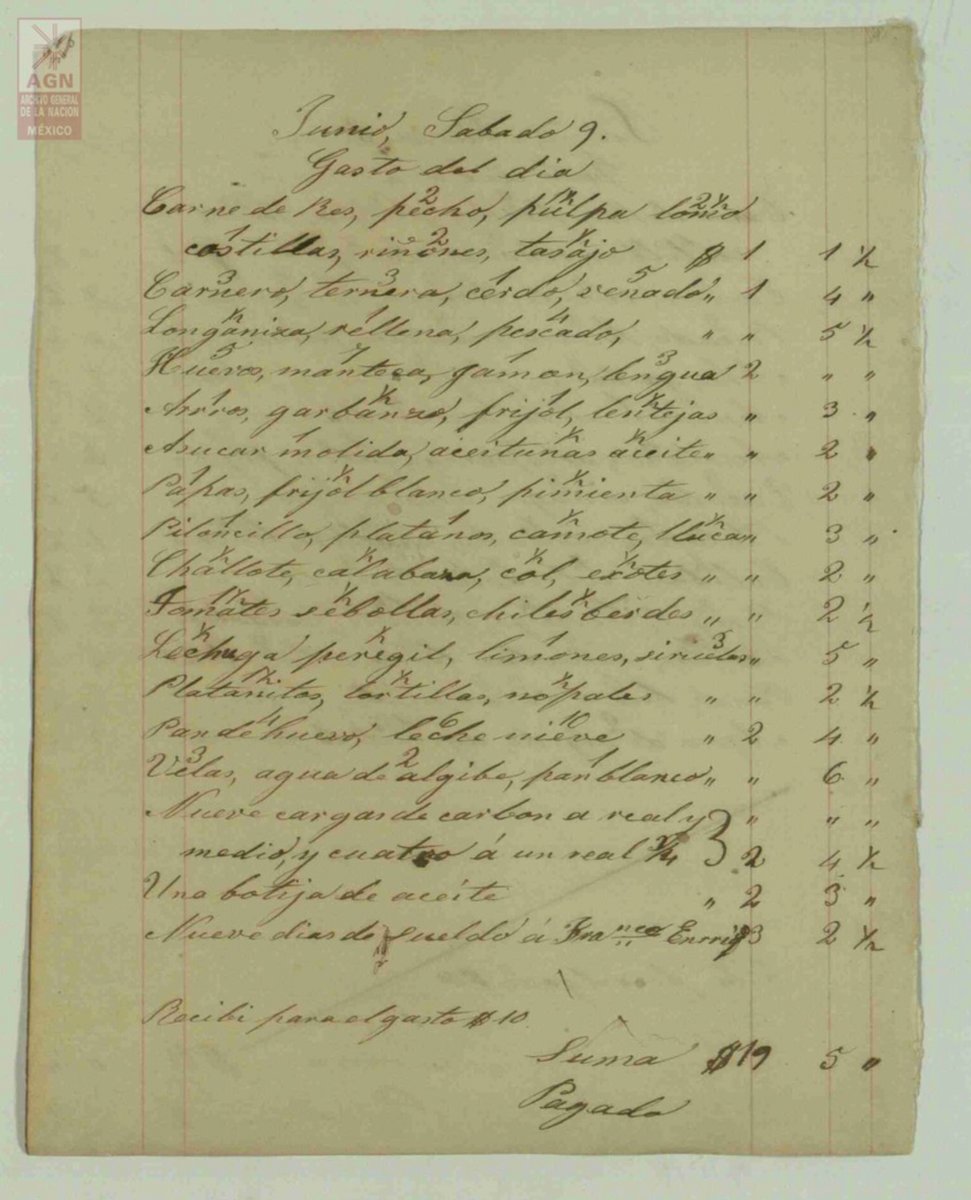 AGN
ARCHIVO GENERAL
DE LA NACION
MÉXICO
Junio, Sabado 9.
Gasto del dia
Carne de Res, pecho, pulpa lomo
costillas, riñones, tasajo $ 1 1 ½
Carnero, ternera, cerdo, venado " 1 4 "
Longaniza, rellena, pescado, " " 5 ½
Huevos, manteca, jamon, lengua 2 " "
Arros, garbanzo, frijol, lentejas " 3 "
Asucar molida, aceitunas aceite " " 2 "
Papas, frijol blanco, pimienta " " 2 "
Piloncillo, platanos, camote, " 3 "
Challote, calabaza, col, exotes " " 2 "
Tomates sebollas, chiles berdes " " 2 ½
Lechuga peregil, limones, siruelas " 5 "
Platanitos, tortillas, nopales " " 2 ½
Pan de huevo, leche nieve " 2 4 "
Velas, agua de algibe, pan blanco " " 6 "
Nueve cargas de carbon a real y " " "
medio, y cuatro á un real ¾ 2 4 ½
Una botija de aceite " 2 3 "
Nueve dias de sueldo á Franco Enrriq 3 2 ½
Recibi para el gasto $ 10
Suma $ 19 5 "
Pagado